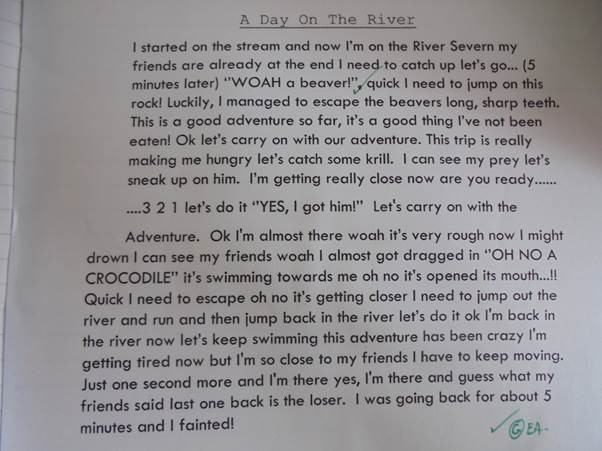 A Day On The River
I started on the stream and now I'm on the River Severn my
friends are already at the end I need to catch up let's go... (5
minutes later) "WOAH a beaver!", quick I need to jump on this
rock! Luckily, I managed to escape the beavers long, sharp teeth.
This is a good adventure so far, it's a good thing I've not been
eaten! Ok let's carry on with our adventure. This trip is really
making me hungry let's catch some krill.  I can see my prey let's
sneak up on him.  I'm getting really close now are you ready......
....3 2 1 let's do it "YES, I got him!"  Let's carry on with the
Adventure.  Ok I'm almost there woah it's very rough now I might
drown I can see my friends woah I almost got dragged in "OH NO A
CROCODILE" it's swimming towards me oh no it's opened its mouth...!!
Quick I need to escape oh no it's getting closer I need to jump out the
river and run and then jump back in the river let's do it ok I'm back in
the river now let's keep swimming this adventure has been crazy I'm
getting tired now but I'm so close to my friends I have to keep moving.
Just one second more and I'm there yes, I'm there and guess what my
friends said last one back is the loser.  I was going back for about 5
minutes and I fainted!
✓ G EA